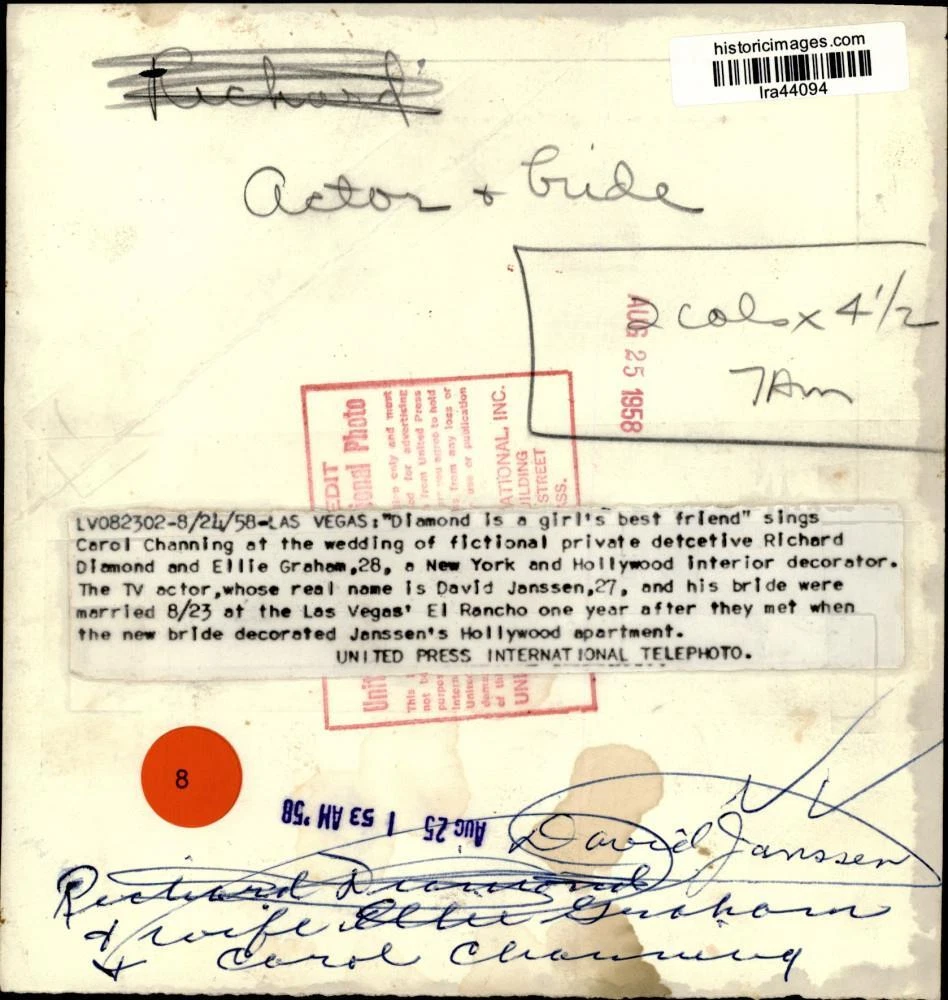 historicimages.com
lra44094
Richard
Actor + bride
2 cols x 4 1/2
7 Am
AUG 25 1958
EDIT
onal Photo
es only and must
ed for advertising
from United Press
you agree to hold
s from any loss or
use or publication
ATIONAL, INC.
ILDING
STREET
SS.
LV082302-8/24/58-LAS VEGAS:"Diamond is a girl's best friend" sings
Carol Channing at the wedding of fictional private detcetive Richard
Diamond and Ellie Graham,28, a New York and Hollywood interior decorator.
The TV actor,whose real name is David Janssen,27, and his bride were
married 8/23 at the Las Vegas' El Rancho one year after they met when
the new bride decorated Janssen's Hollywood apartment.
UNITED PRESS INTERNATIONAL TELEPHOTO.
Unit
This
not b
purpos
Intern
United
dama
of th
UNI
8
AUG 25 1 53 AM '58
David Janssen
Richard Diamond
+ wife Ellie Graham
+ Carol Channing